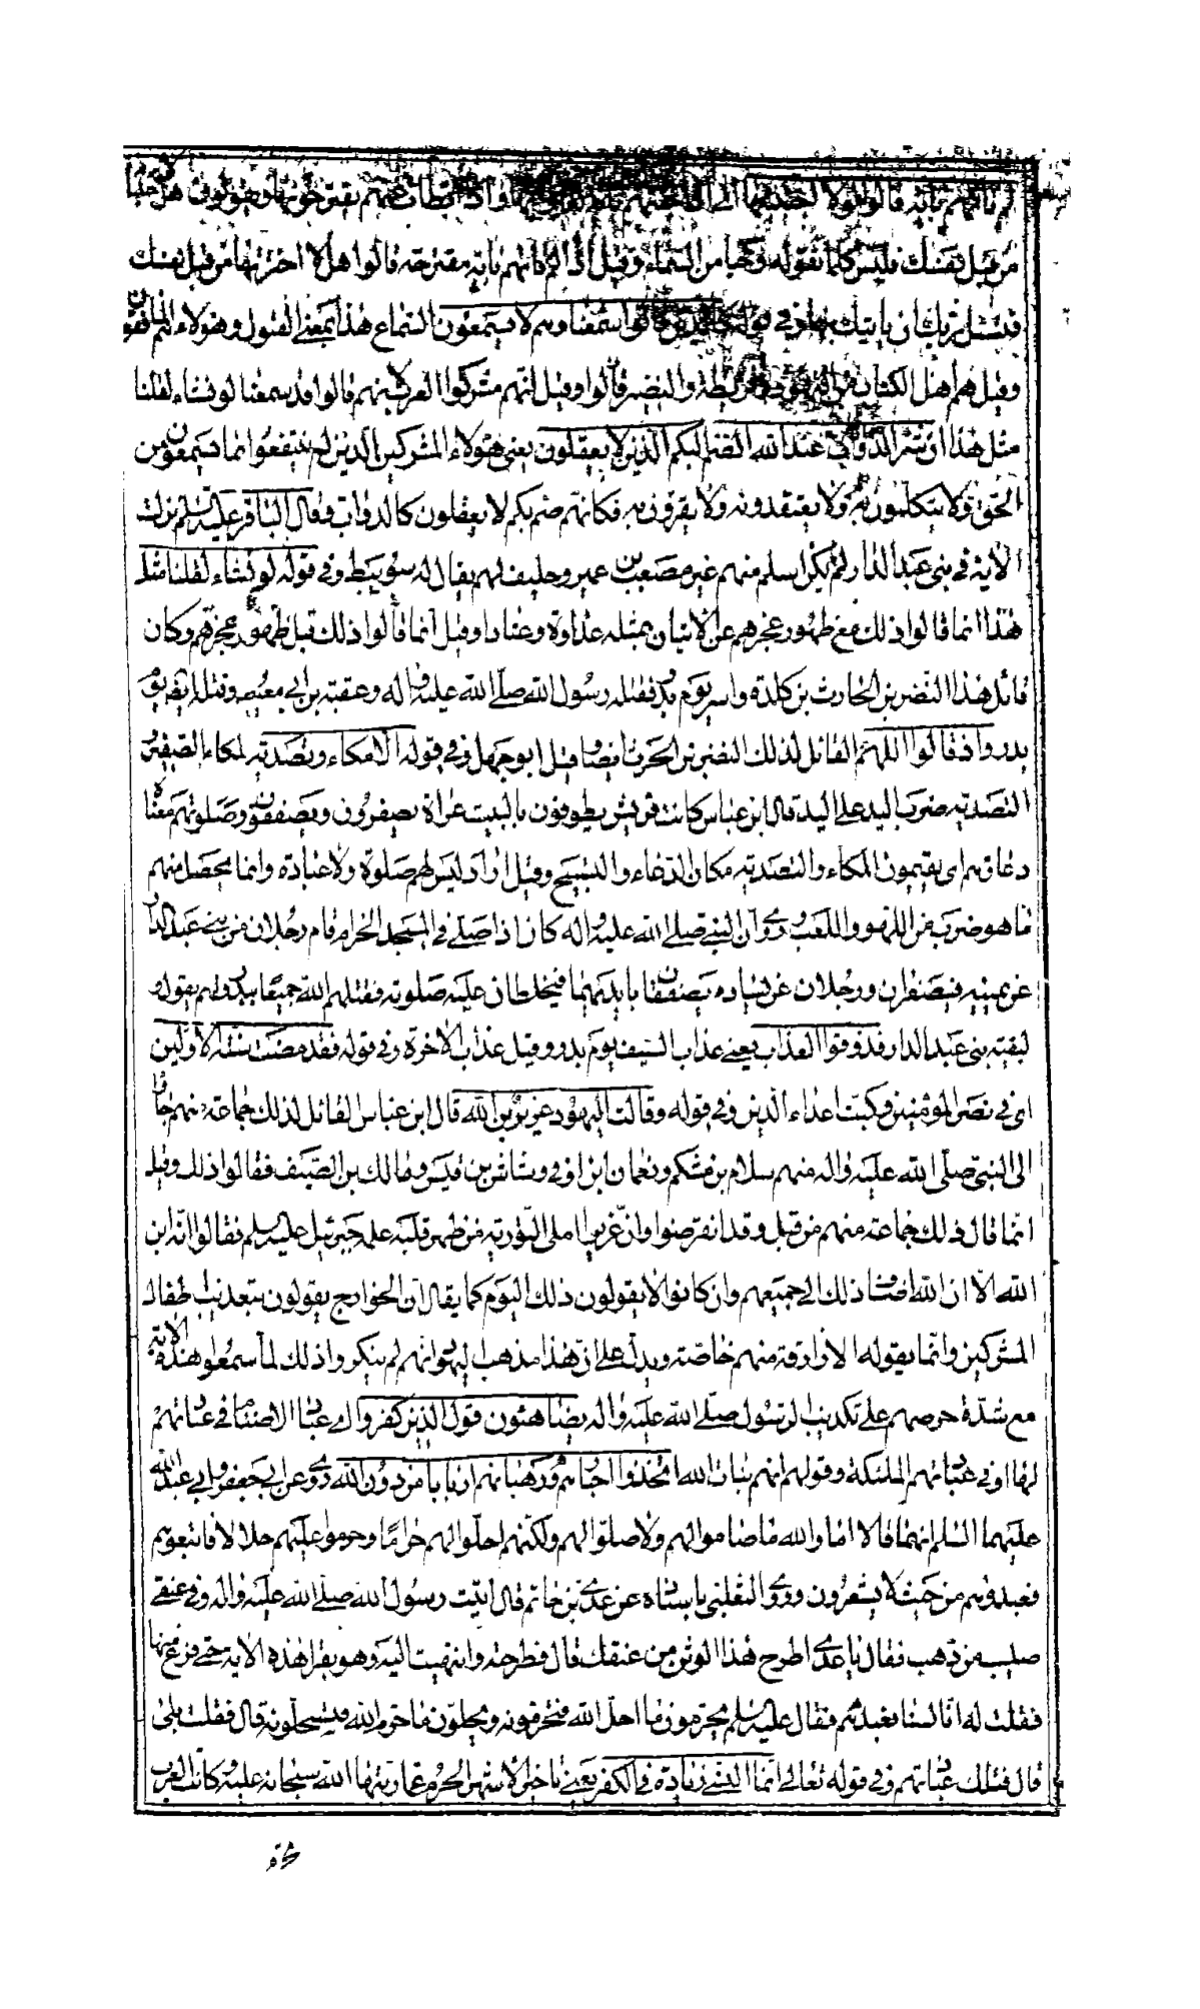 لم تأتهم بآية قالوا لولا اجتبيتها
من قبل نفسك فليس كلما تقوله وحيا من السماء وقيل اذا لم تأتهم بآية مقترحة قالوا هلا اخترتها من قبل نفسك
فتسئل ربك ان يأتيك بها وفي قوله قالوا سمعنا وهم لا يسمعون السماع هذا بمعنى القبول وهؤلاء هم المنافقون
وقيل هم اهل الكتاب من اليهود وقريظة والنضير قالوا وقيل انهم مشركوا العرب لانهم قالوا قد سمعنا لو نشاء لقلنا
مثل هذا ان شر الدواب عند الله الصم البكم الذين لا يعقلون يعني هؤلاء المشركين الذين لم ينتفعوا بما يسمعون من
الحق ولا يتكلمون به ولا يعتقدونه ولا يقرون به فكانهم صم بكم لا يعقلون كالدواب وقال الباقر عليه السلم نزلت
الاية في بني عبد الدار لم يكن اسلم منهم غير مصعب بن عمير وحليف لهم يقال له سويبط وفي قوله لو نشاء لقلنا مثل
هذا انما قالوا ذلك مع ظهور عجزهم عن الاتيان بمثله عداوة وعنادا وقيل انما قالوا ذلك قبل ظهور عجزهم وكان
قائل هذا النضر بن الحارث بن كلدة واسر يوم بدر فقتله رسول الله صلى الله عليه واله وعقبة بن ابي معيط وقتله ايضا يوم
بدر واذ قالوا اللهم القائل لذلك النضر بن الحرث ايضا وقيل ابو جهل وفي قوله الا مكاء وتصدية المكاء الصفير و
التصدية ضرب اليد على اليد قال ابن عباس كانت قريش يطوفون بالبيت عراة يصفرون ويصفقون وصلوتهم معناه
دعاؤهم اي يقيمون المكاء والتصدية مكان الدعاء والتسبيح وقيل اراد ليس لهم صلوة ولا عبادة وانما يحصل منهم
ما هو ضرب من اللهو واللعب وروي ان النبي صلى الله عليه واله كان اذا صلى في المسجد الحرام قام رجلان من بني عبد الدار
عن يمينه فيصفران ورجلان عن يساره يصفقان بايديهما فيخلطان عليه صلوته فقتلهم الله جميعا ببدر ولهم يقول و
لبقية بني عبد الدار فذوقوا العذاب يعني عذاب السيف يوم بدر وقيل عذاب الاخرة وفي قوله فقد مضت سنة الاولين
اي في نصر المؤمنين وكبت اعداء الدين وفي قوله وقالت اليهود عزير بن الله قال ابن عباس القائل لذلك جماعة منهم جاؤا
الى النبي صلى الله عليه واله منهم سلام بن مشكم ونعمان بن اوفى وشاس بن قيس ومالك بن الصيف فقالوا ذلك وقيل
انما قال ذلك جماعة منهم من قبل وقد انقرضوا وان عزيرا املى التورية من ظهر قلبه علمه جبرئيل عليه السلم فقالوا انه ابن
الله الا ان الله اضاف ذلك الى جميعهم وان كانوا لا يقولون ذلك اليوم كما يقال ان الخوارج يقولون بتعذيب اطفال
المشركين وانما يقوله الازارقة منهم خاصة ويدل على ان هذا مذهب اليهود انهم لم ينكروا ذلك لما سمعوا هذه الاية
مع شدة حرصهم على تكذيب الرسول صلى الله عليه واله يضاهئون قول الذين كفروا اي عباد الاصنام في عبادتهم
لها او في عبادتهم الملئكة وقولهم انهم بنات الله اتخذوا احبارهم ورهبانهم اربابا من دون الله روي عن ابي جعفر وابي عبد الله
عليهما السلم انهما قالا اما والله ما صاموا لهم ولا صلوا لهم ولكنهم احلوا لهم حراما وحرموا عليهم حلالا فاتبعوهم
فعبدوهم من حيث لا يشعرون وروى الثعلبي باسناده عن عدي بن حاتم قال اتيت رسول الله صلى الله عليه واله وفي عنقي
صليب من ذهب فقال يا عدي اطرح هذا الوثن من عنقك قال فطرحته وانتهيت اليه وهو يقرا هذه الاية حتى فرغ منها
فقلت له انا لسنا نعبدهم فقال عليه السلم يحرمون ما احل الله فتحرمونه ويحلون ما حرم الله فتستحلونه قال فقلت بلى
قال فتلك عبادتهم وفي قوله تعالى انما النسئ زيادة في الكفر يعني تاخير الاشهر الحرم عما رتبها الله سبحانه عليه كانت العرب